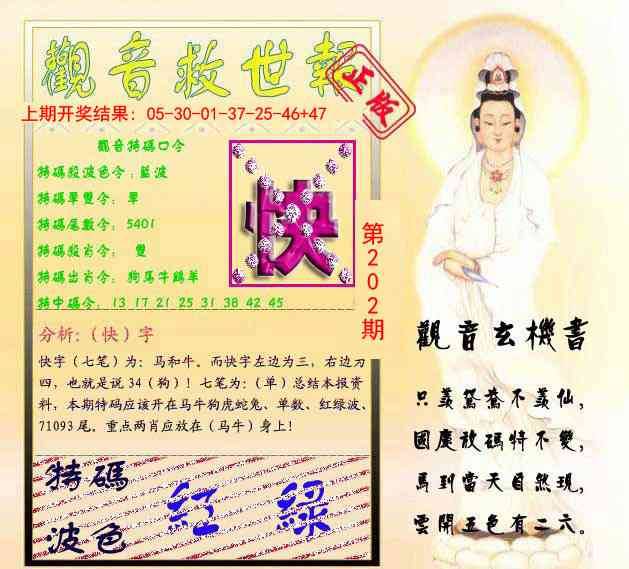 觀音救世報
正版
上期开奖结果：05-30-01-37-25-46+47
觀音特碼口令
特碼殺波色令：藍波
特碼單雙令：單
特碼尾數令：5401
特碼殺肖令：雙
特碼出肖令：狗馬牛鷄羊
特中碼令：13 17 21 25 31 38 42 45
快
第202期
分析:（快）字
快字（七笔）为：马和牛。而快字左边为三，右边为
四，也就是说 34（狗）！七笔为：（单）总结本报资
料，本期特码应该开在马牛狗虎蛇兔、单数、红绿波、
71093 尾。重点两肖应放在（马牛）身上！
特碼
波色
紅 綠
觀音玄機書
只羨鴛鴦不羨仙，
國慶放碼特不變，
馬到當天自然現，
雲開五色有二六。